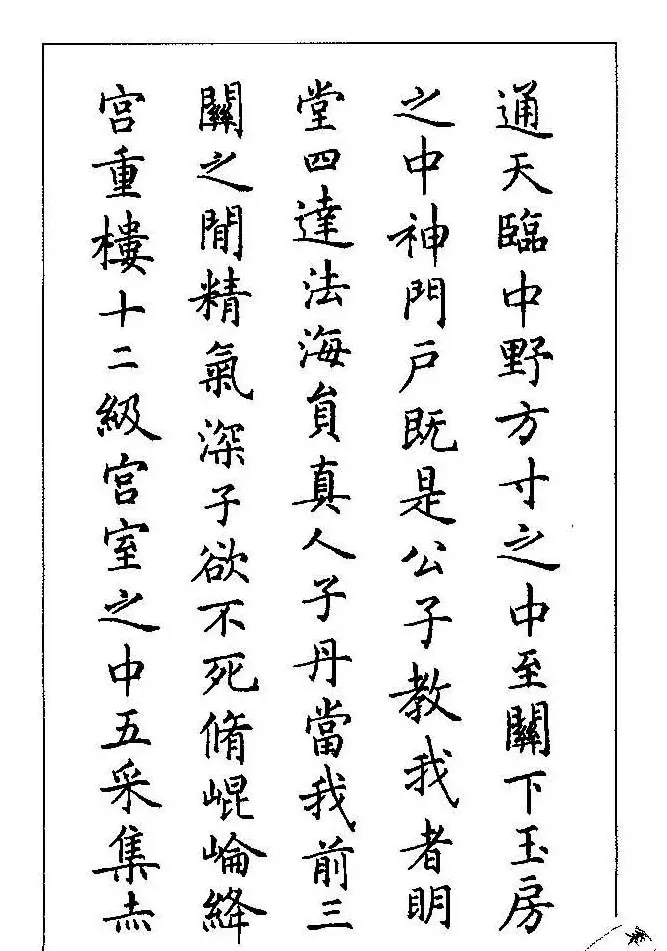 通天臨中野方寸之中至關下玉房
之中神門戶既是公子教我者明
堂四達法海負真人子丹當我前三
關之間精氣深子欲不死脩崐崘絳
宮重樓十二級宮室之中五采集赤